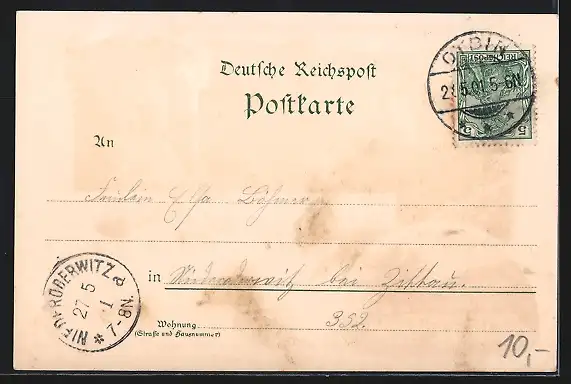 Deutsche Reichspost
Postkarte
OYBIN
27.5.01.5-6N.
REICHSPOST
5 5
An
Fräulein Elsa
in Niederoderwitz bei Zittau.
352.
Wohnung
(Straße und Hausnummer)
NIEDERODERWITZ a
27 5
1
7-8N.
10,-